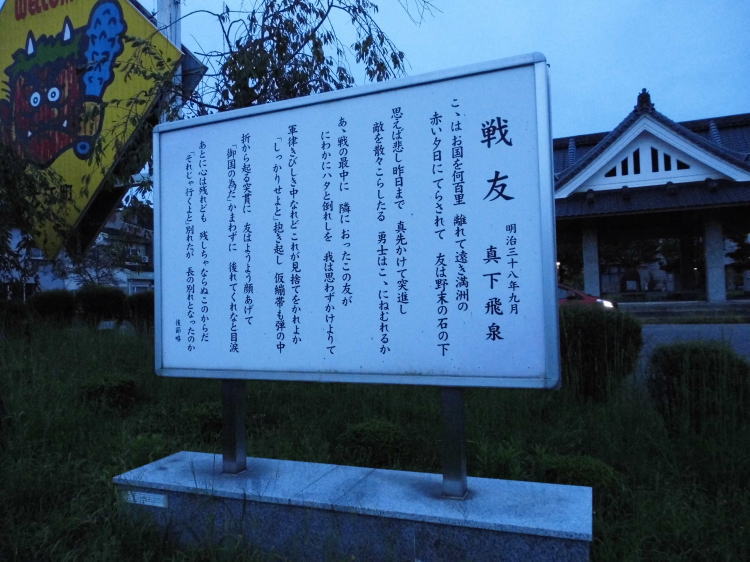 Welcome
町
戦友
明治三十八年九月
真下飛泉
こゝはお国を何百里 離れて遠き満洲の
赤い夕日にてらされて 友は野末の石の下
思えば悲し昨日まで 真先かけて突進し
敵を散々こらしたる 勇士はこゝにねむれるか
あゝ戦の最中に 隣におったこの友が
にわかにハタと倒れしを 我は思わずかけよりて
軍律きびしき中なれどこれが見捨てをかれよか
「しっかりせよと」抱き起し 仮繃帯も弾の中
折から起る突貫に 友はようよう顔あげて
「御国の為だ」かまわずに 後れてくれなと目涙
あとに心は残れども 残しちゃならぬこのからだ
「それじゃ行くよと」別れたが 長の別れとなったのか
後節略